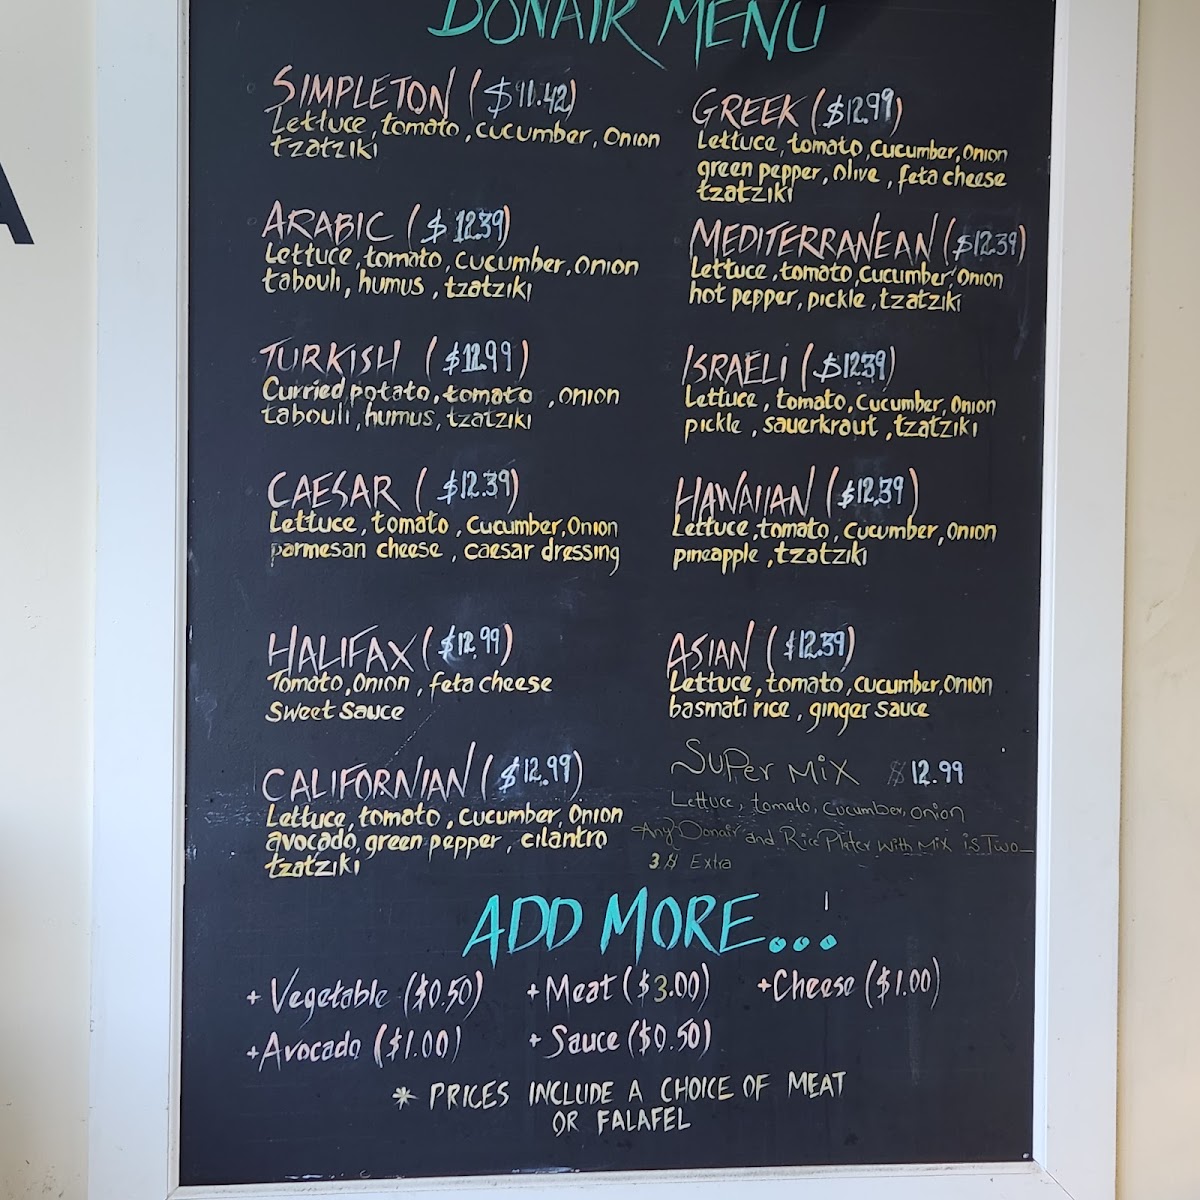 DONAIR MENU
SIMPLETON ($11.42)
Lettuce, tomato, cucumber, onion
tzatziki
ARABIC ($12.39)
Lettuce, tomato, cucumber, onion
tabouli, humus, tzatziki
TURKISH ($12.99)
Curried potato, tomato, onion
tabouli, humus, tzatziki
CAESAR ($12.39)
Lettuce, tomato, cucumber, onion
parmesan cheese, caesar dressing
HALIFAX ($12.99)
Tomato, onion, feta cheese
sweet sauce
CALIFORNIAN ($12.99)
Lettuce, tomato, cucumber, onion
avocado, green pepper, cilantro
tzatziki
GREEK ($12.99)
Lettuce, tomato, cucumber, onion
green pepper, olive, feta cheese
tzatziki
MEDITERRANEAN ($12.39)
Lettuce, tomato, cucumber, onion
hot pepper, pickle, tzatziki
ISRAELI ($12.39)
Lettuce, tomato, cucumber, onion
pickle, sauerkraut, tzatziki
HAWAIIAN ($12.39)
Lettuce, tomato, cucumber, onion
pineapple, tzatziki
ASIAN ($12.39)
Lettuce, tomato, cucumber, onion
basmati rice, ginger sauce
Super Mix $12.99
Lettuce, tomato, cucumber, onion
Any Donair and Rice Plater with Mix is Two
3$ Extra
ADD MORE...
+ Vegetable ($0.50) + Meat ($3.00) +Cheese ($1.00)
+Avocado ($1.00) + Sauce ($0.50)
* PRICES INCLUDE A CHOICE OF MEAT
OR FALAFEL
A